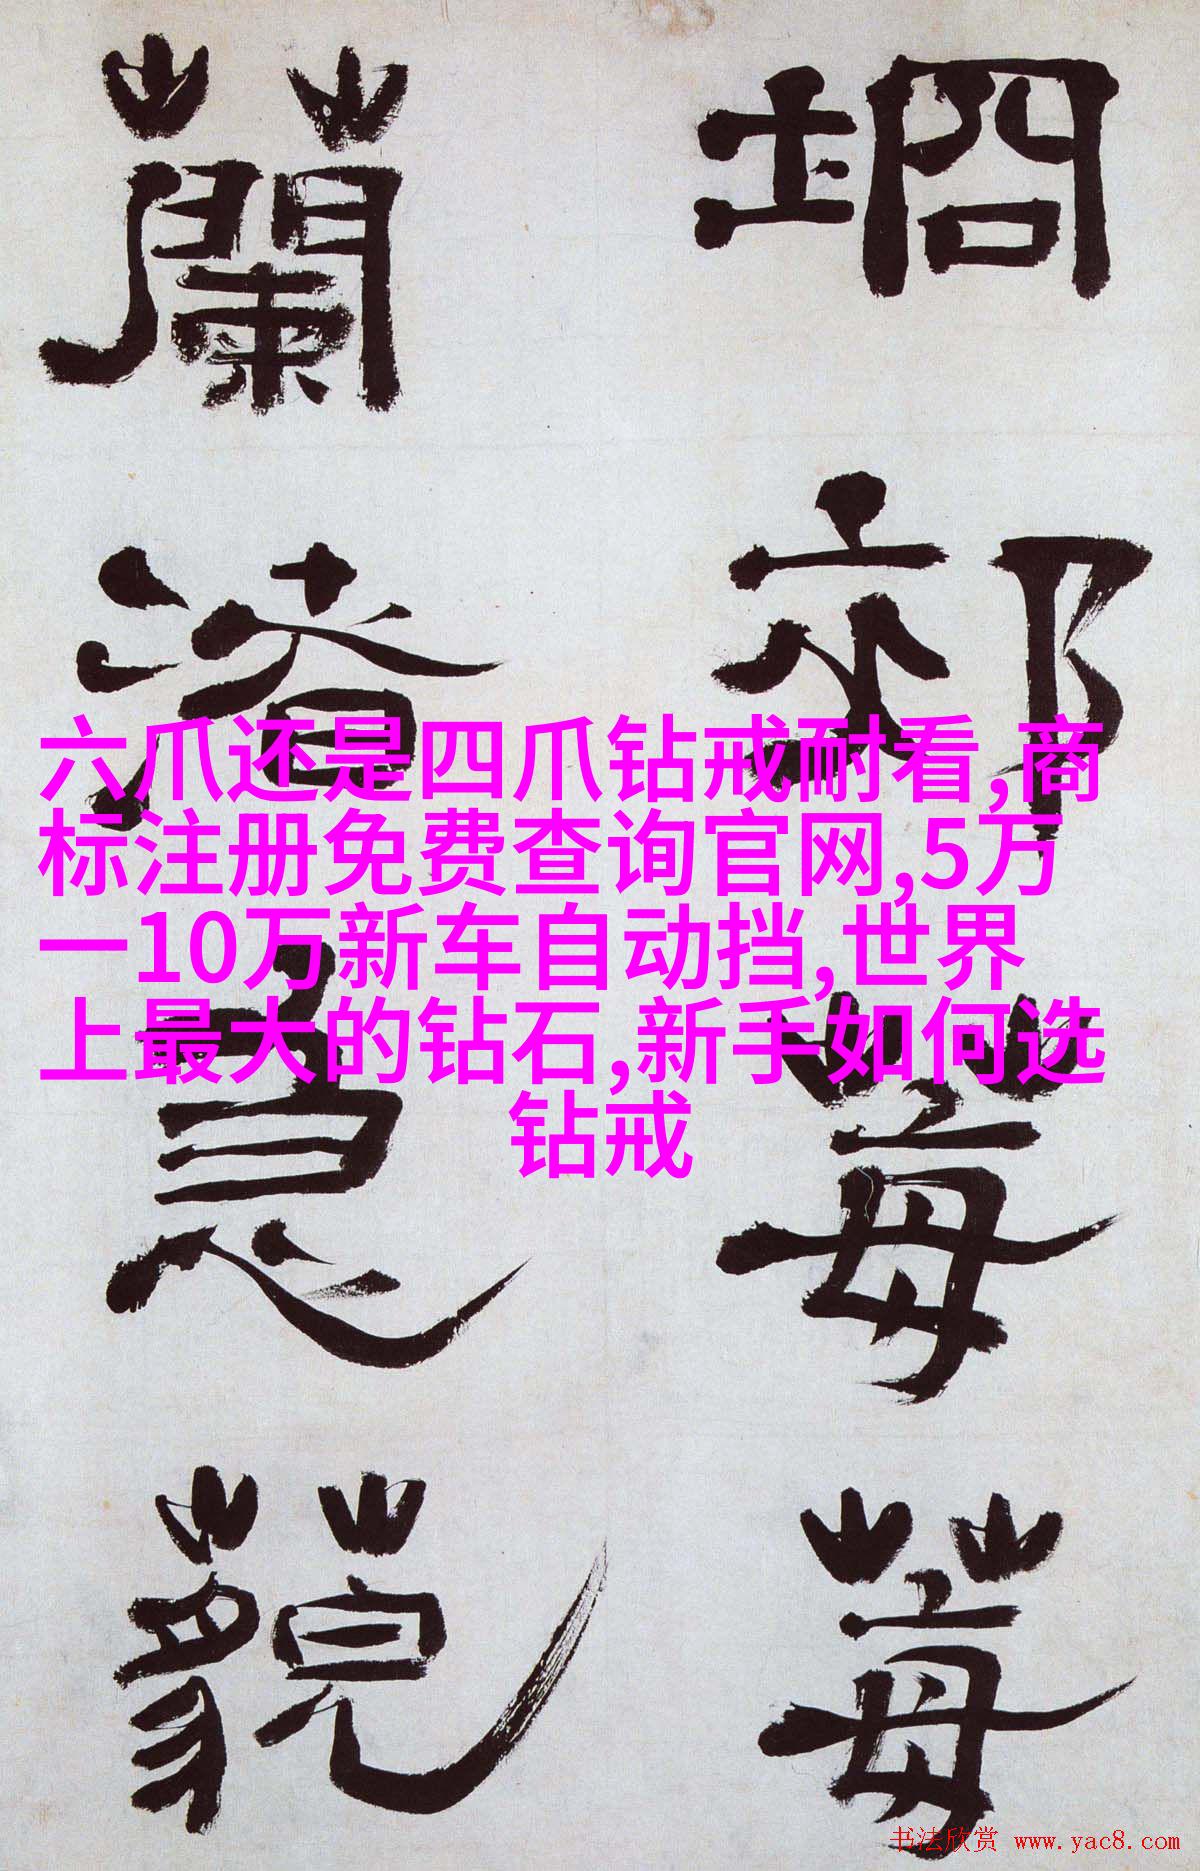 堈
祁
莓
莓
蘭
渚
急
藐
六爪还是四爪钻戒耐看,商
标注册免费查询官网,5万
一10万新车自动挡,世界
上最大的钻石,新手如何选
钻戒
书法欣赏 www.yac8.com